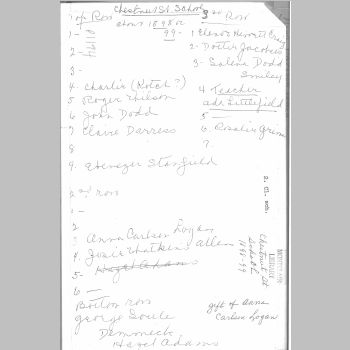 Top Row Chestnut St. School
about 1898 or 99-
1-
2
3-
4. Charlie (Kotch?)
5 Roger Wilson
6 John Dodd
7 Clavie Darress
8
9. Ebenezer Stanfield
2nd row
1 -
2
3 Anna Carlson Logan
4 Josie Watkins Allen
5- Hazel Adams
6 -
Bottom row
George Soule
Dimmock
Hazel Adams
3rd Row
1 Elenor Hewitt Craig
2 - Dottie Jacobus
3 - Salena Dodd Smiley
4 Teacher
Ada Littlefield
5
6. Rosalie Grim
7.
Chestnut St
School
1898-99
gift of Anna
Carlson Logan